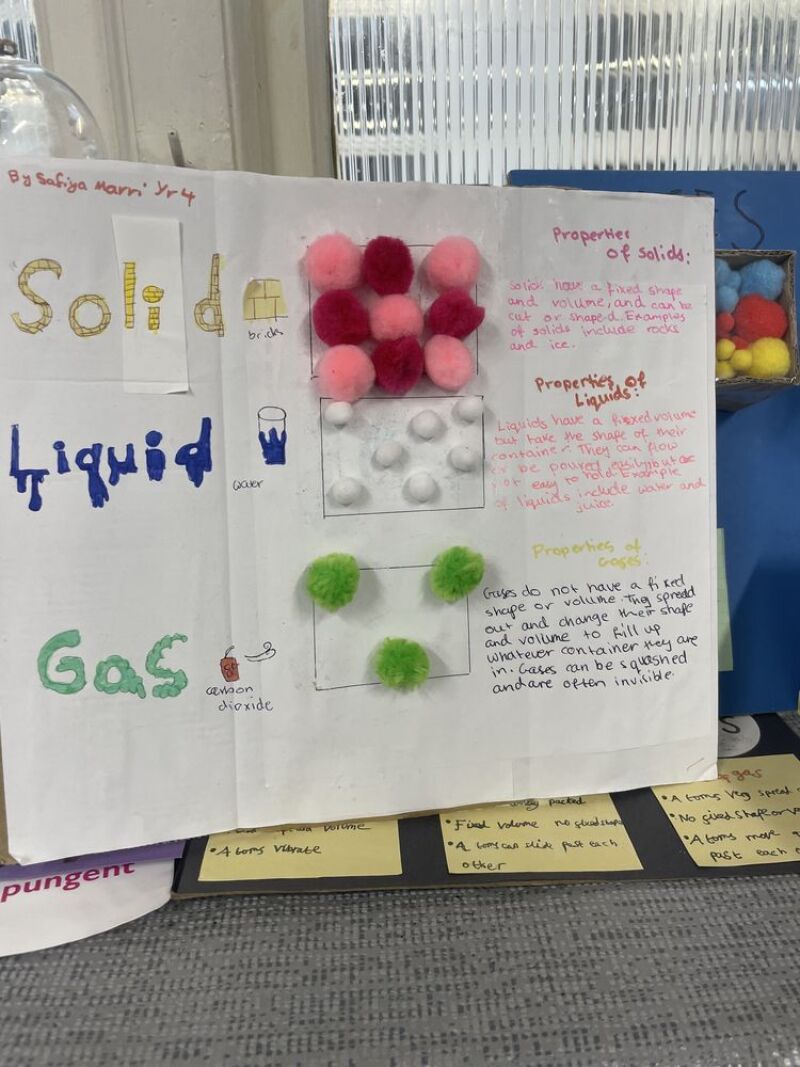 By Safiya Marri Yr4
Solid
bricks
Properties
of Solids:
Solids have a fixed shape
and volume, and can be
cut or shaped. Examples
of solids include rocks
and ice.
Liquid
water
Properties of
Liquids:
Liquids have a fixed volume
but take the shape of their
container. They can flow
or be poured easily but are
not easy to hold. Example
of liquids include water and
juice.
Gas
carbon
dioxide
Properties of
Gases:
Gases do not have a fixed
shape or volume. They spread
out and change their shape
and volume to fill up
whatever container they are
in. Gases can be squashed
and are often invisible.
volume
•Atoms vibrate
packed
•Fixed volume no fixed shape
•Atoms can slide past each
other
gas
•Atoms very spread
•No fixed shape or
•Atoms move
past each
pungent